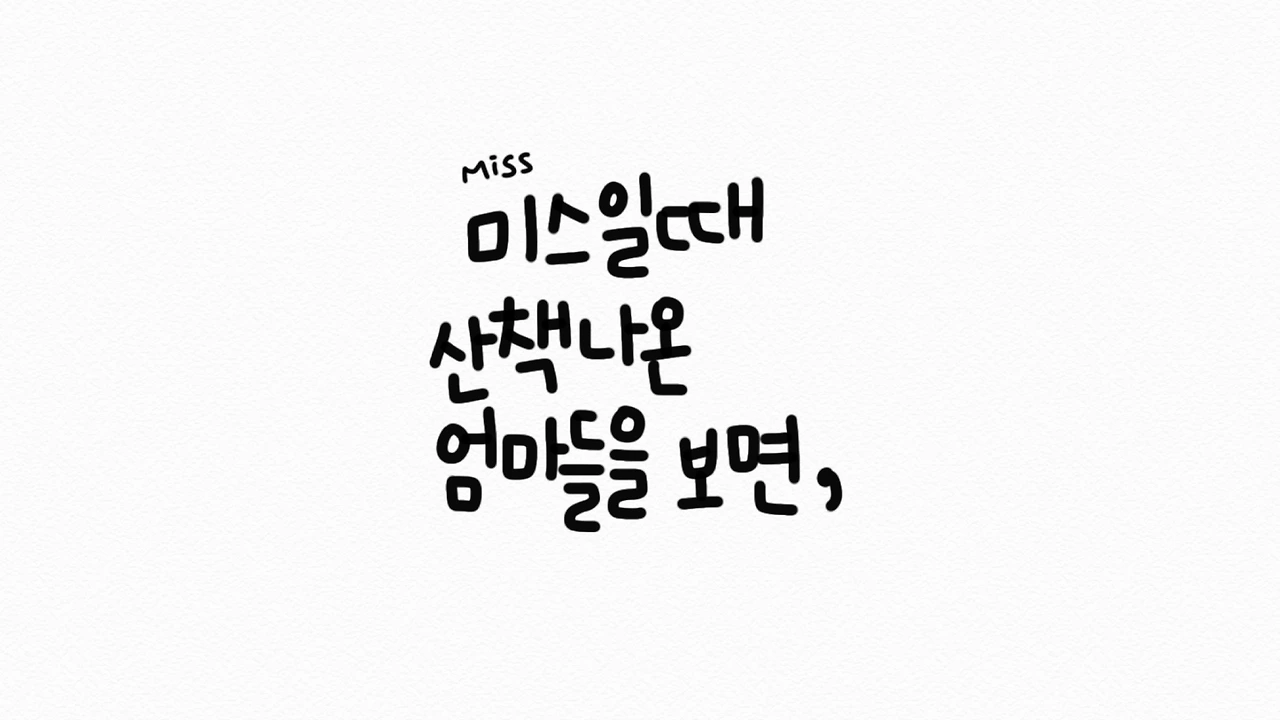 Miss
미스일때
산책나온
엄마들을 보면,